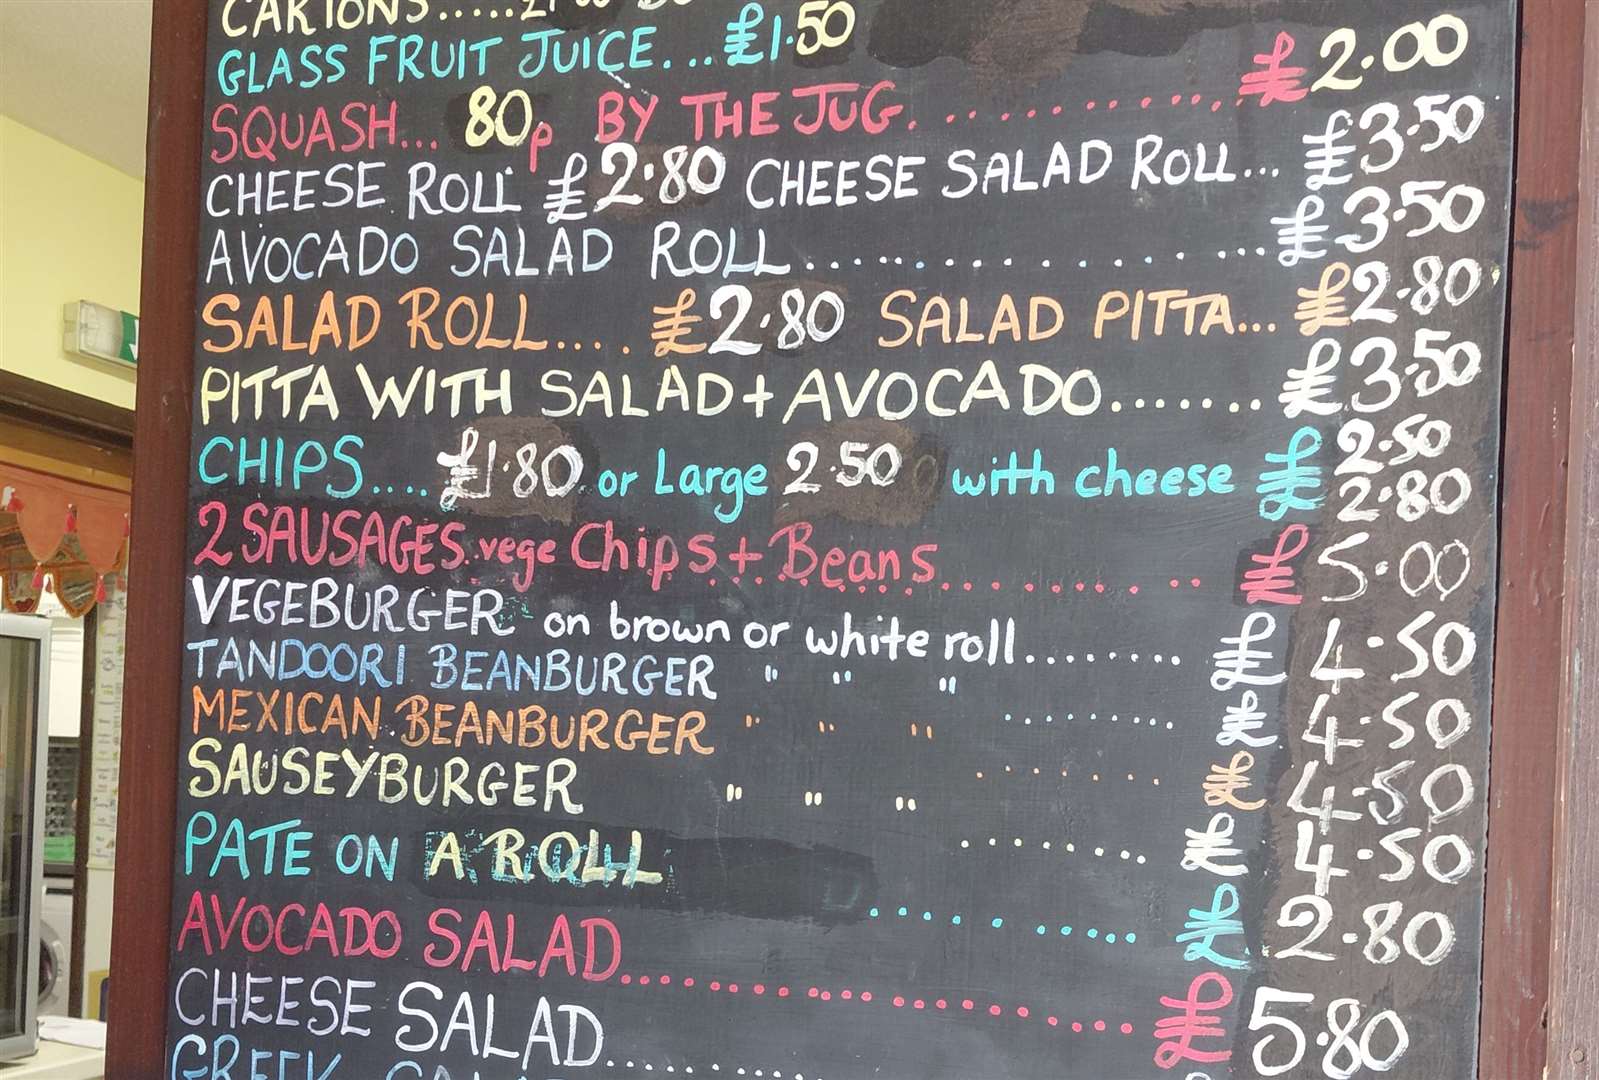 CARTONS.....
GLASS FRUIT JUICE... £1.50
SQUASH... 80p BY THE JUG............... £2.00
CHEESE ROLL £2.80 CHEESE SALAD ROLL... £3.50
AVOCADO SALAD ROLL................ £3.50
SALAD ROLL.... £2.80 SALAD PITTA... £2.80
PITTA WITH SALAD + AVOCADO....... £3.50
CHIPS.... £1.80 or Large 2.50 with cheese £ 2.50
2.80
2 SAUSAGES. vege Chips + Beans......... £5.00
VEGEBURGER on brown or white roll........ £4.50
TANDOORI BEANBURGER " " " ......... £4.50
MEXICAN BEANBURGER " " " ....... £4.50
SAUSEYBURGER " " " ........ £4.50
PATE ON A ROLL ......... £2.80
AVOCADO SALAD.................. £5.80
CHEESE SALAD............
GREEK SALAD